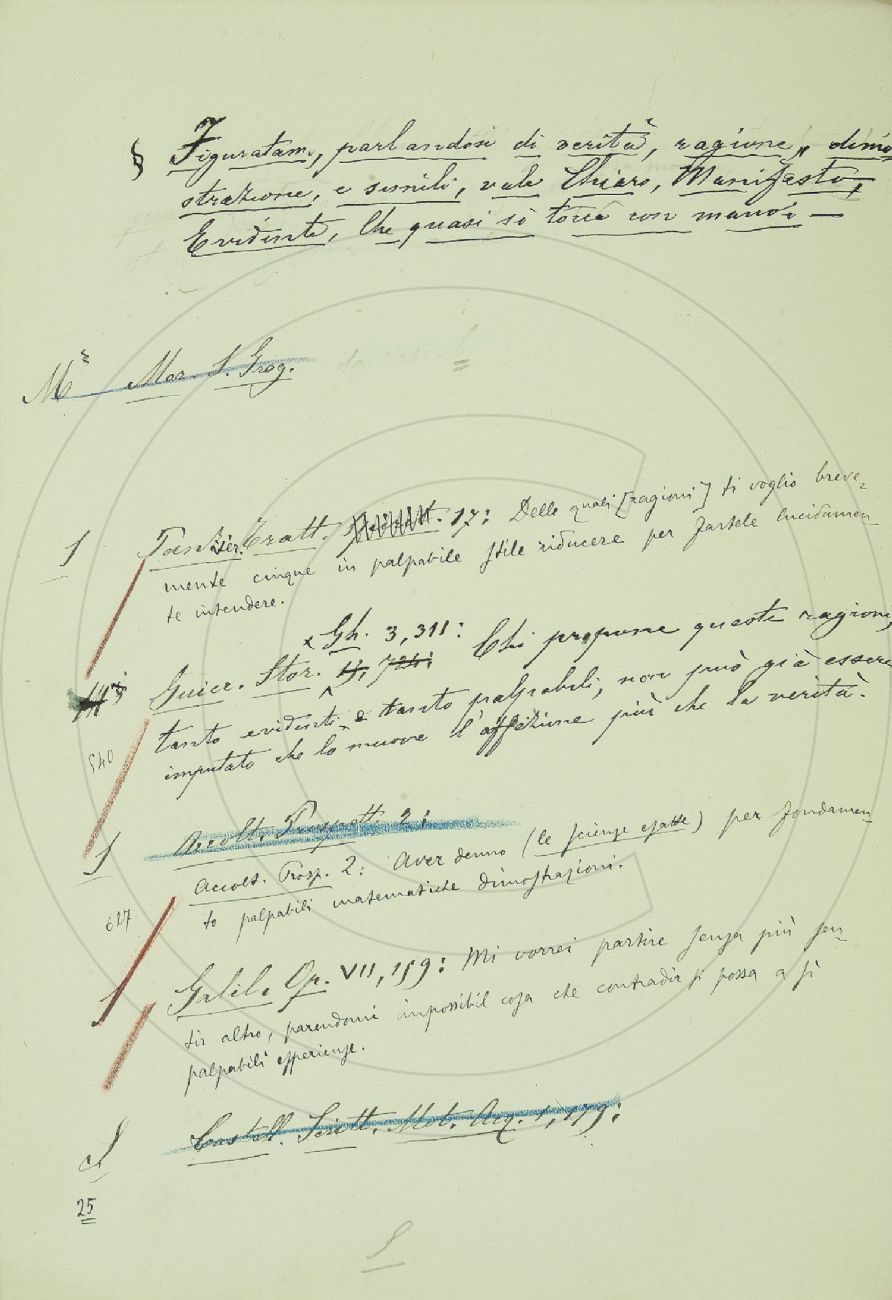 § Figuratam., parlandosi di verità, ragione, dimo-
strazione, e simili, vale Chiaro, Manifesto,
Evidente, Che quasi si tocca con mano: —
Mor. S. Greg.
1 Tratt. 17: Delle quali [ragioni] ti voglio breve-
mente cinque in palpabile stile riducere per fartele lucidamen-
te intendere.
Gh. 3, 311:
Guicc. Stor. Chi propone queste ragioni,
tanto evidenti e tanto palpabili, non può già essere
imputato che lo muova l'affezione più che la verità.
540
1 Accolt. Prospett. 2:
Accolt. Prosp. 2: Aver denno (le scienze esatte) per fondamen-
to palpabili matematiche dimostrazioni.
627
1 Galil. Op. VII, 159: Mi vorrei partire senza più sen-
tir altro, parendomi impossibil cosa che contradir si possa a sì
palpabili esperienze.
Castell. Scritt. Mot. Acq. 1, 179:
25